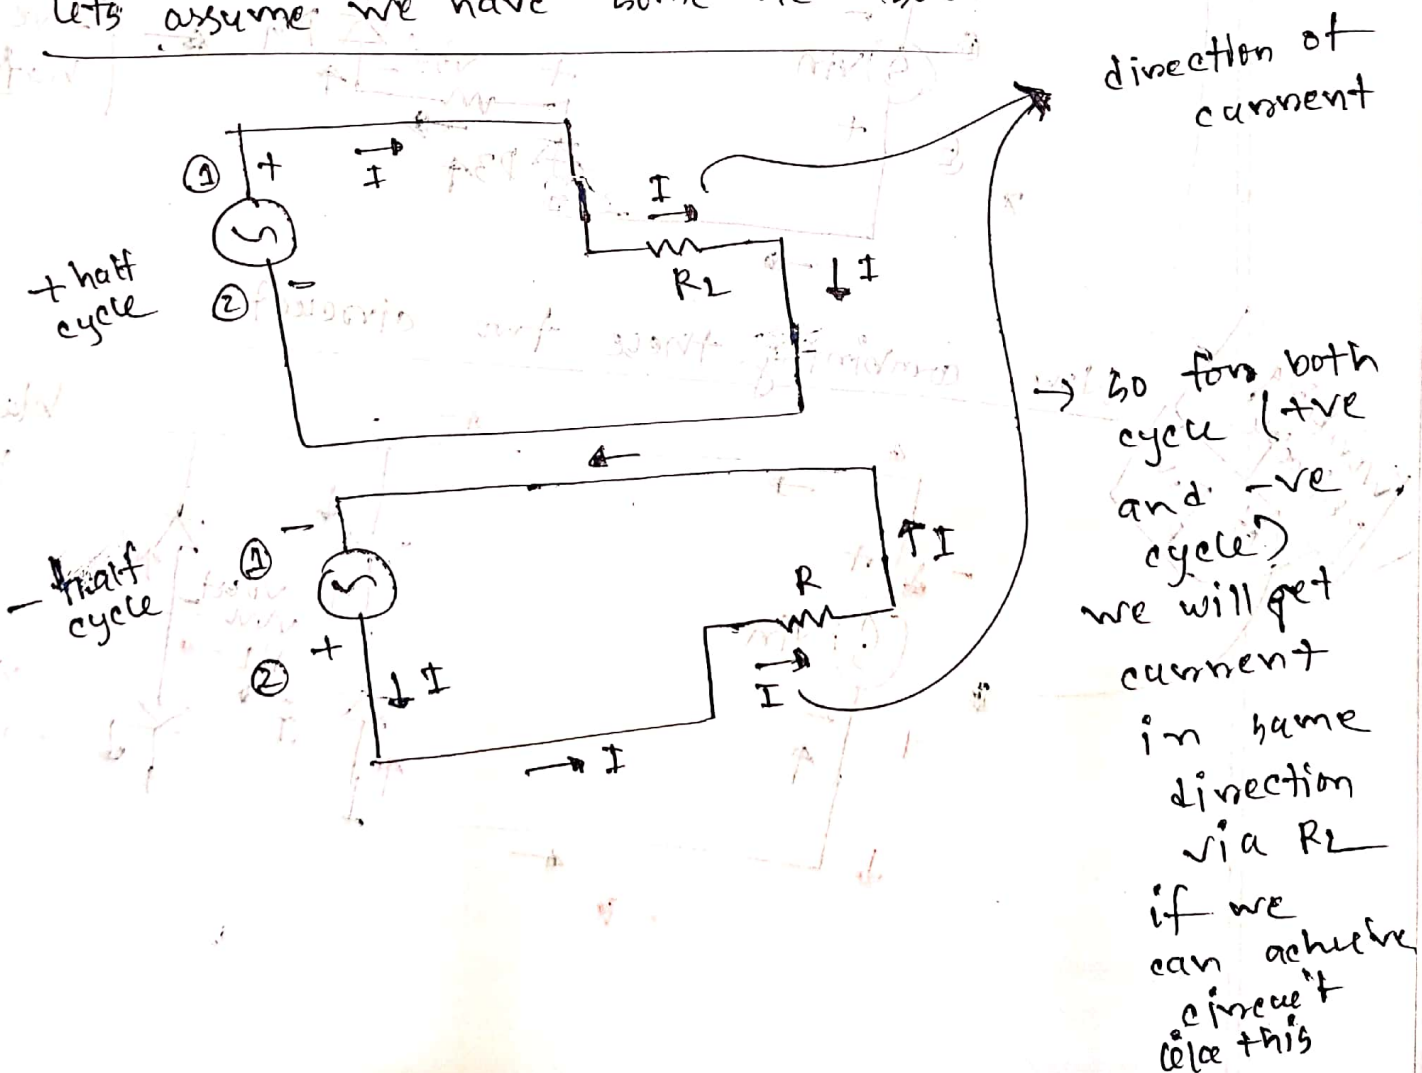 lets assume we have some
direction of
current
①
+
I
I
+ half
cycle
②
-
RL
I
→ so for both
cycle (+ve
and -ve
cycle)
we will get
current
in same
direction
via RL
if we
can achieve
circuit
like this
-
①
- half
cycle
+
②
I
R
I
I
I